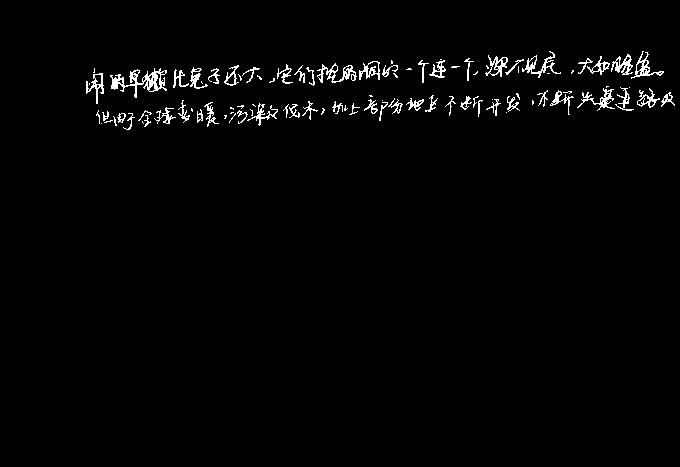 的旱獭比兔子还大,它们挖的洞穴一个连一个,深不见底,大如脸盆。
但由于全球变暖,污染及伐木,加上部分地上不断开发,不断兴建道路及